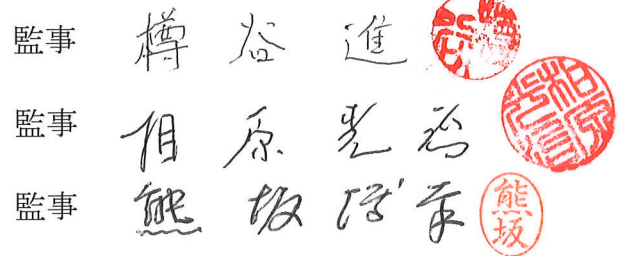 監事 樽谷 進
監事 相原
監事 熊坂 博幸 熊坂